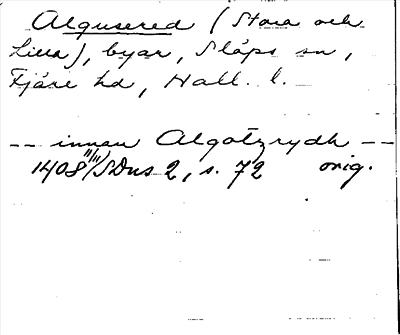 Algusered (Stora och
Lilla), byar, Släps sn,
Fjäre hd, Hall. l.
-- innan Algotzrydh --
1408 11/11 / SDns 2, s. 72 orig.